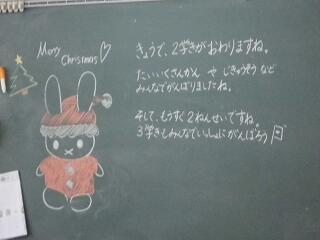 Merry
Christmas♡
きょうで、2学きがおわりますね。
たいいくさんかん や じきゅうそう など
みんなでがんばりましたね。
そして、もうすぐ2ねんせいですね。
3学きもみんなでいっしょにがんばろう